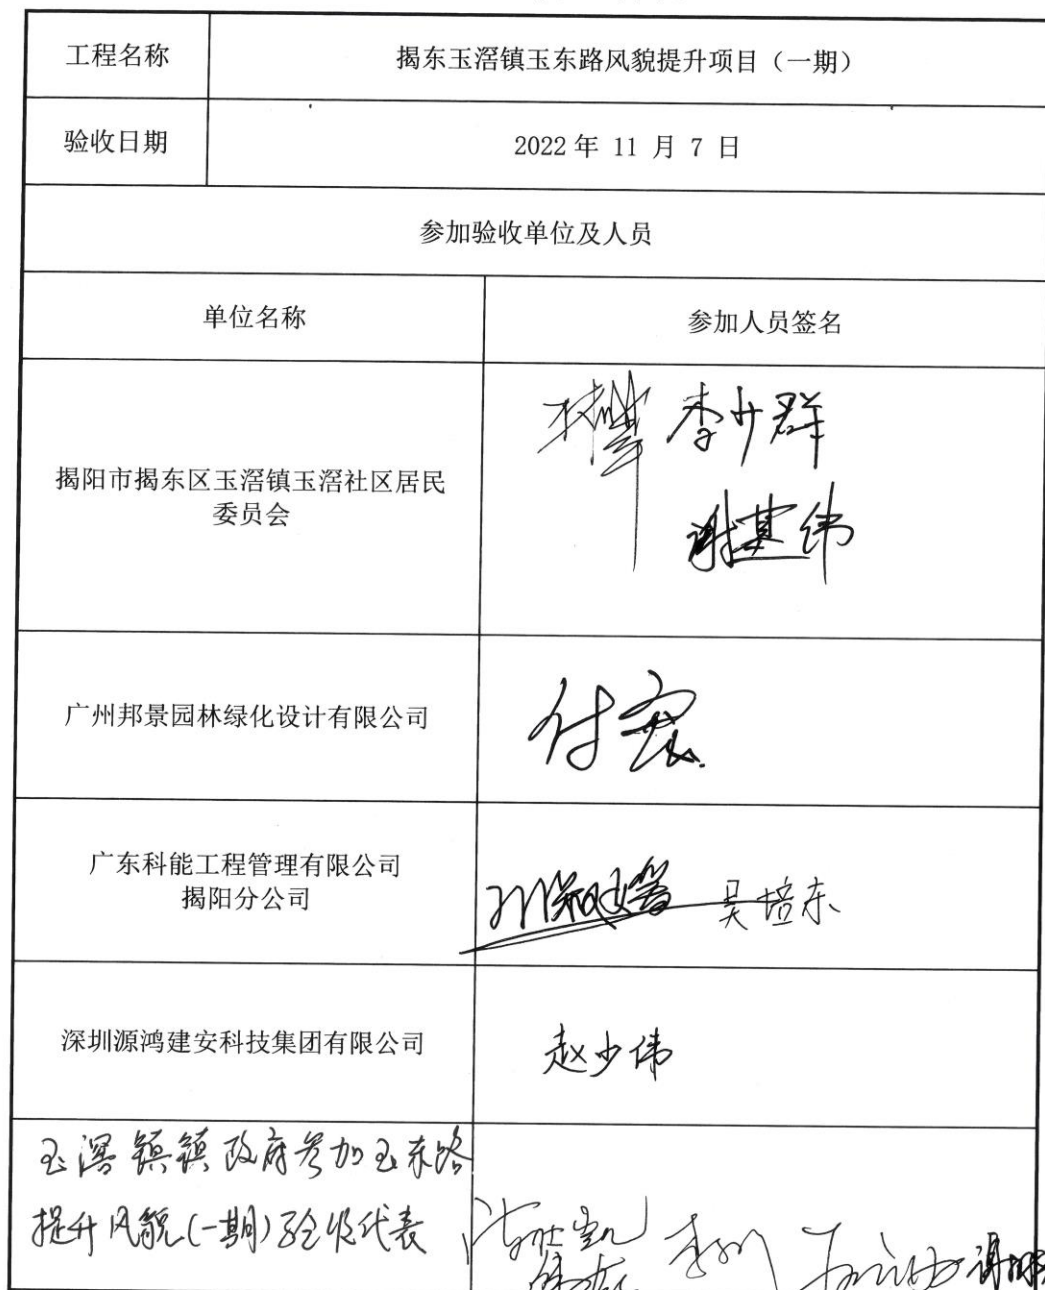 工程名称 揭东玉滘镇玉东路风貌提升项目（一期）
验收日期 2022年 11 月 7 日
参加验收单位及人员
单位名称 参加人员签名
李少群
揭阳市揭东区玉滘镇玉滘社区居民
委员会
谢基伟
广州邦景园林绿化设计有限公司 付宏
广东科能工程管理有限公司
揭阳分公司
吴培东
深圳源鸿建安科技集团有限公司 赵少伟
玉滘镇镇政府参加玉东路
提升风貌(一期)验收代表